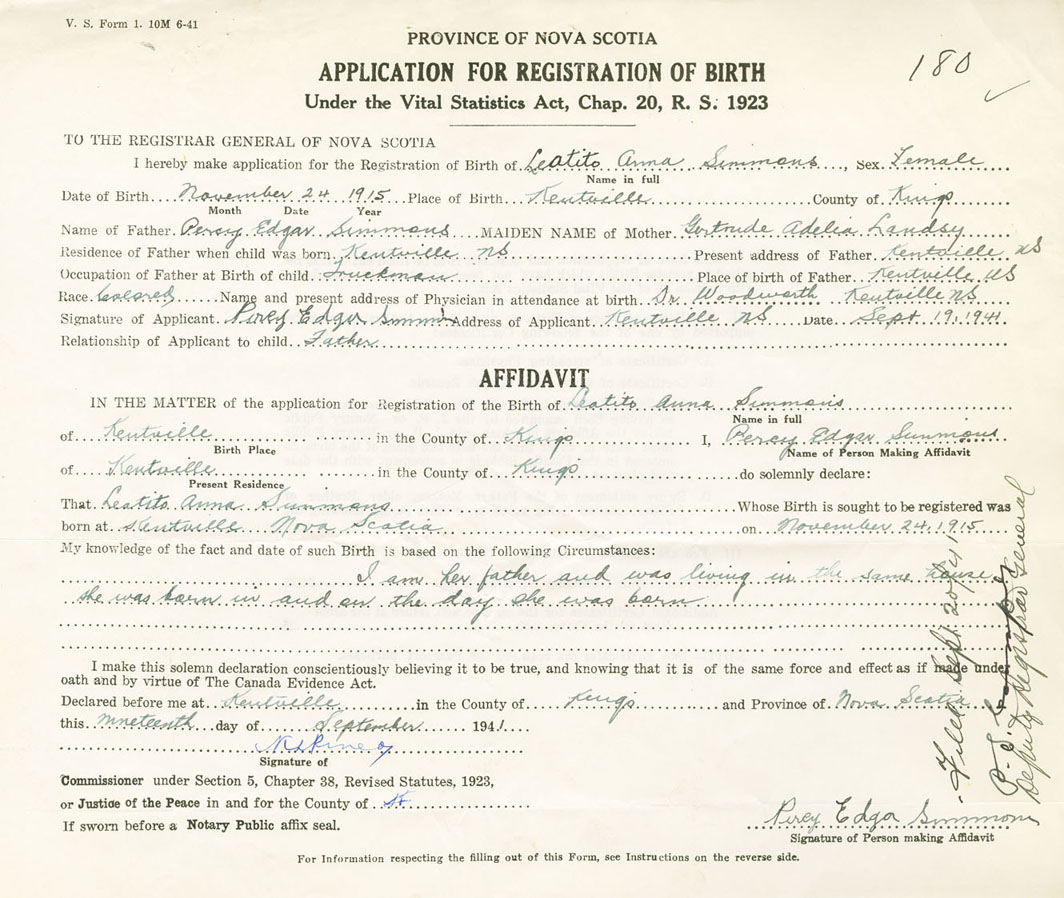 V. S. Form 1. 10M 6-41
PROVINCE OF NOVA SCOTIA
180
APPLICATION FOR REGISTRATION OF BIRTH
Under the Vital Statistics Act, Chap. 20, R. S. 1923
TO THE REGISTRAR GENERAL OF NOVA SCOTIA
I hereby make application for the Registration of Birth of Leatito Anna Simmons, Sex. Female
Name in full
Date of Birth November 24 1915 Place of Birth Kentville County of Kings
Month Date Year
Name of Father Percy Edgar Simmons MAIDEN NAME of Mother Gertrude Adelia Landsy
Residence of Father when child was born Kentville NS Present address of Father Kentville NS
Occupation of Father at Birth of child Truckman Place of birth of Father Kentville NS
Race Colored Name and present address of Physician in attendance at birth Dr. Woodworth Kentville NS
Signature of Applicant Percy Edgar Address of Applicant Kentville NS Date Sept 19, 1941
Relationship of Applicant to child Father
AFFIDAVIT
IN THE MATTER of the application for Registration of the Birth of Leatito Anna Simmons
Name in full
of Kentville in the County of Kings I, Percy Edgar Simmons
Birth Place Name of Person Making Affidavit
of Kentville in the County of Kings do solemnly declare:
Present Residence
That Leatito Anna Simmons Whose Birth is sought to be registered was
born at Kentville Nova Scotia on November 24, 1915
My knowledge of the fact and date of such Birth is based on the following Circumstances:
I am her father and was living in the same house
she was born in and on the day she was born
I make this solemn declaration conscientiously believing it to be true, and knowing that it is of the same force and effect as if made under
oath and by virtue of The Canada Evidence Act.
Declared before me at Kentville in the County of Kings and Province of Nova Scotia
this nineteenth day of September 1941.
Signature of
Commissioner under Section 5, Chapter 38, Revised Statutes, 1923,
or Justice of the Peace in and for the County of
If sworn before a Notary Public affix seal.
Percy Edgar Simmons
Signature of Person making Affidavit
For Information respecting the filling out of this Form, see Instructions on the reverse side.
Filed Sept 20/41
Deputy Registrar General